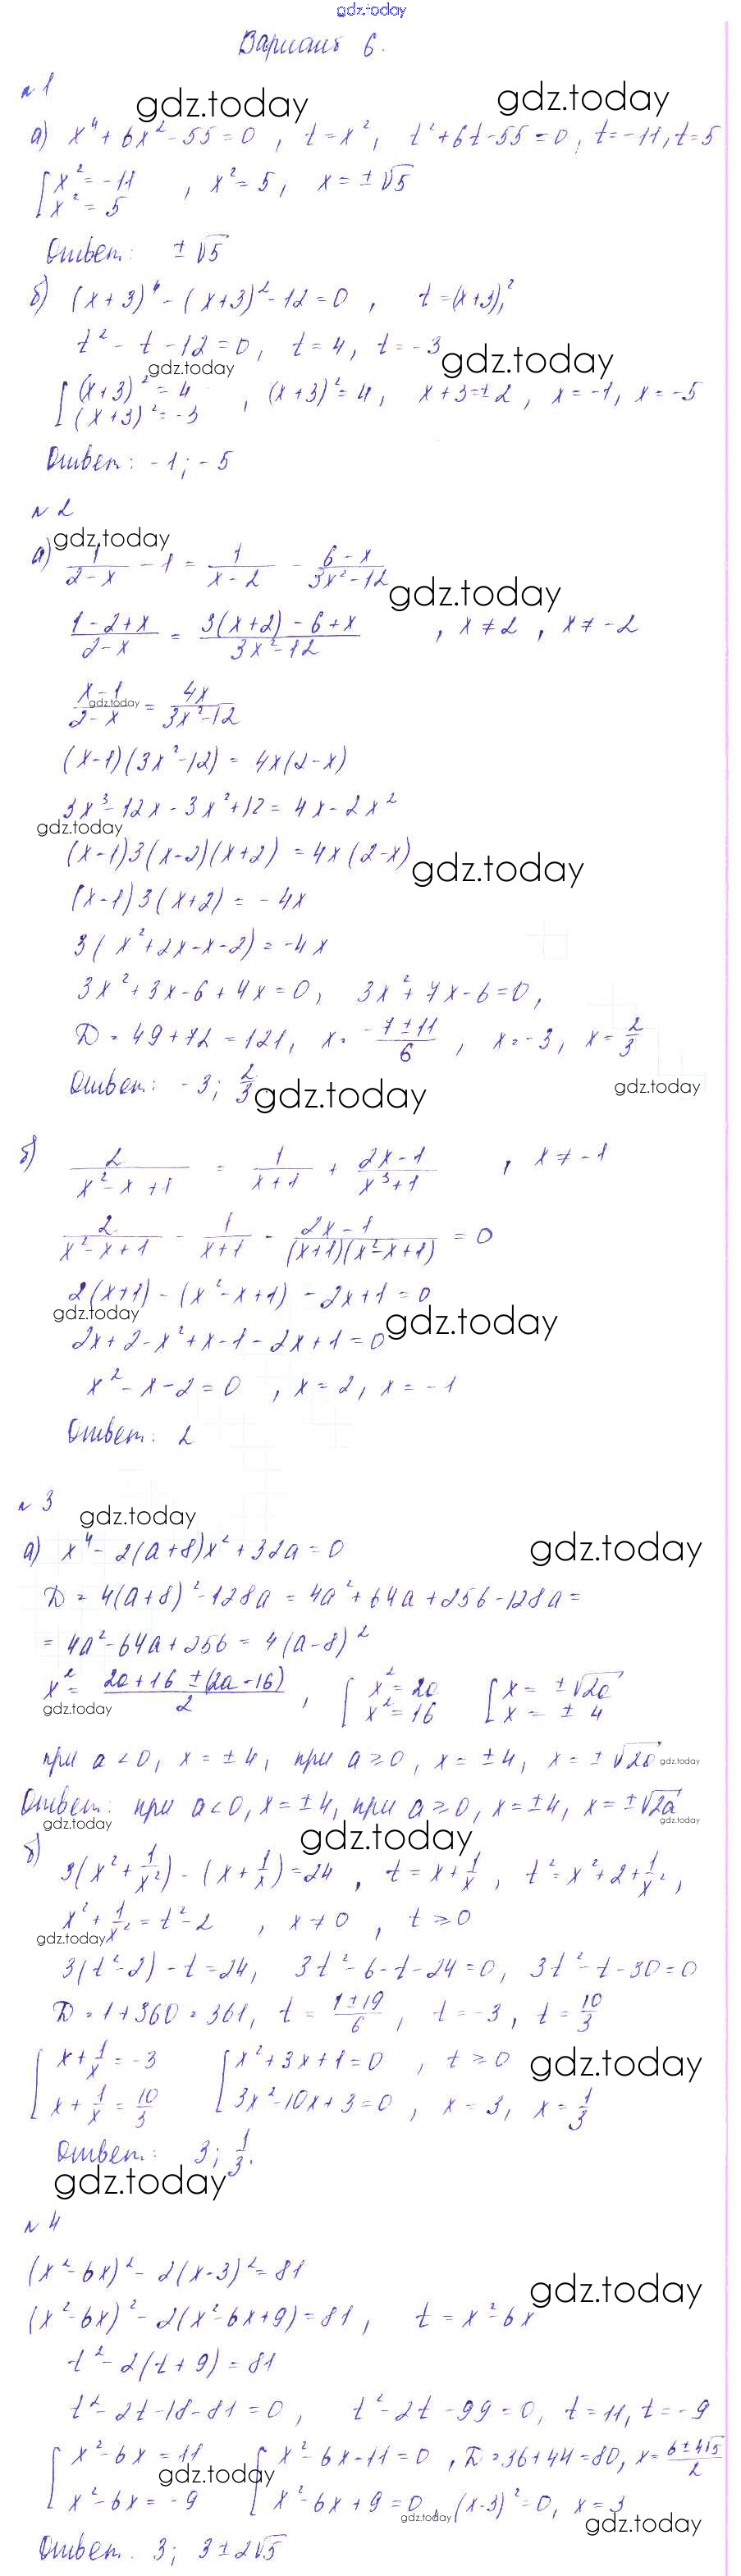 gdz.today
Вариант 6.
№1
gdz.today gdz.today
а) x⁴ + 6x² - 55 = 0 , t = x², t² + 6t - 55 = 0, t = -11, t = 5
[ x² = -11 , x² = 5, x = ± √5
x² = 5
Ответ: ± √5
б) (x + 3)⁴ - (x + 3)² - 12 = 0 , t = (x + 3)²,
t² - t - 12 = 0, t = 4, t = -3
gdz.today gdz.today
[ (x+3)² = 4 , (x+3)² = 4, x + 3 = ± 2, x = -1, x = -5
(x+3)² = -3
Ответ: -1; -5
№2
gdz.today
а) 1/(2-x) - 1 = 1/(x-2) - (6-x)/(3x²-12)
gdz.today
(1-2+x)/(2-x) = (3(x+2) - 6 + x)/(3x²-12) , x ≠ 2 , x ≠ -2
(x-1)/(2-x) = 4x/(3x²-12)
gdz.today
(x-1)(3x²-12) = 4x(2-x)
3x³ - 12x - 3x² + 12 = 4x - 2x²
gdz.today
(x-1)3(x-2)(x+2) = 4x(2-x)
gdz.today
(x-1)3(x+2) = -4x
3(x² + 2x - x - 2) = -4x
3x² + 3x - 6 + 4x = 0, 3x² + 7x - 6 = 0,
D = 49 + 72 = 121, x = (-7 ± 11)/6 , x = -3, x = 2/3
Ответ: -3; 2/3
gdz.today gdz.today
б) 2/(x²-x+1) = 1/(x+1) + (2x-1)/(x³+1) , x ≠ -1
2/(x²-x+1) - 1/(x+1) - (2x-1)/((x+1)(x²-x+1)) = 0
2(x+1) - (x²-x+1) - 2x + 1 = 0
gdz.today gdz.today
2x + 2 - x² + x - 1 - 2x + 1 = 0
x² - x - 2 = 0 , x = 2, x = -1
Ответ: 2
№3
gdz.today
а) x⁴ - 2(a+8)x² + 32a = 0
gdz.today
D = 4(a+8)² - 128a = 4a² + 64a + 256 - 128a =
= 4a² - 64a + 256 = 4(a-8)²
x² = (2a+16 ± (2a-16))/2 , [ x² = 2a [ x = ± √2a
gdz.today
x² = 16 x = ± 4
при a < 0, x = ± 4, при a ≥ 0, x = ± 4, x = ± √2a
gdz.today
Ответ: при a < 0, x = ± 4, при a ≥ 0, x = ± 4, x = ± √2a
gdz.today gdz.today
gdz.today
б) 3(x² + 1/x²) - (x + 1/x) = 24 , t = x + 1/x , t² = x² + 2 + 1/x²,
x² + 1/x² = t² - 2 , x ≠ 0 , t ≥ 0
gdz.today
3(t²-2) - t = 24, 3t² - 6 - t - 24 = 0, 3t² - t - 30 = 0
D = 1 + 360 = 361, t = (1 ± 19)/6 , t = -3, t = 10/3
[ x + 1/x = -3 [ x² + 3x + 1 = 0 , t ≥ 0
gdz.today
x + 1/x = 10/3 3x² - 10x + 3 = 0 , x = 3, x = 1/3
Ответ: 3; 1/3.
gdz.today
№4
(x²-6x)² - 2(x-3)² = 81
gdz.today
(x²-6x)² - 2(x²-6x+9) = 81, t = x² - 6x
t² - 2(t+9) = 81
t² - 2t - 18 - 81 = 0, t² - 2t - 99 = 0, t = 11, t = -9
[ x² - 6x = 11 [ x² - 6x - 11 = 0 , D = 36 + 44 = 80, x = (6 ± 4√5)/2
gdz.today
x² - 6x = -9 x² - 6x + 9 = 0, (x-3)² = 0, x = 3
gdz.today gdz.today
Ответ. 3; 3 ± 2√5